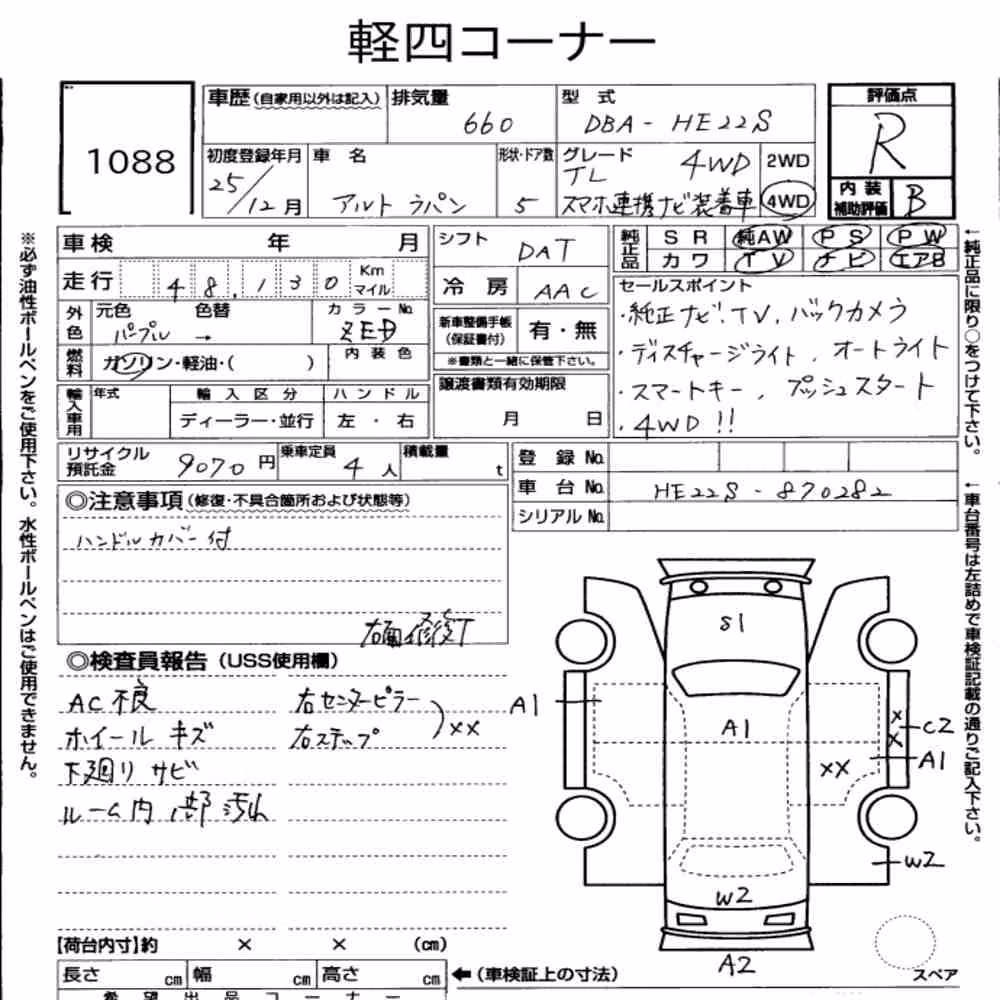 軽四コーナー
1088
車歴(自家用以外は記入) 排気量 660
型式 DBA-HE22S
評価点 R
内装補助評価 B
初度登録年月 25/12月
車名 アルト ラパン
形状・ドア数 5
グレード TL 4WD スマホ連携ナビ装着車
2WD
4WD
車検 年 月
走行 48,130 Km マイル
外色 元色 パープル → 色替 カラーNo. ZED
燃料 ガソリン・軽油・( ) 内装色
輸入車用 年式 輸入区分 ディーラー・並行 ハンドル 左・右
シフト DAT
冷房 AAC
新車整備手帳(保証書付) 有・無
※書類と一緒に保管下さい。
譲渡書類有効期限 月 日
純正品 SR 純AW PS PW
カワ TV ナビ エアB
セールスポイント
・純正ナビ.TV,バックカメラ
・ディスチャージライト,オートライト
・スマートキー,プッシュスタート
・4WD!!
リサイクル預託金 9070円 乗車定員 4人 積載量 t
登録No.
車台No. HE22S-870282
シリアルNo.
◎注意事項(修復・不具合箇所および状態等)
ハンドルカバー付
右面修復
◎検査員報告(USS使用欄)
AC不良
ホイールキズ
下廻りサビ
ルーム内部汚れ
右センターピラー
右ステップ
XX
S1
A1
A1
XX
X
X
C2
A1
W2
W2
A2
スペア
【荷台内寸】約 × × (cm)
長さ cm 幅 cm 高さ cm ←(車検証上の寸法)
希望出品コーナー
※必ず油性ボールペンをご使用下さい。水性ボールペンはご使用できません。
←純正品に限り○をつけて下さい。
←車台番号は左詰めで車検証記載の通りご記入下さい。